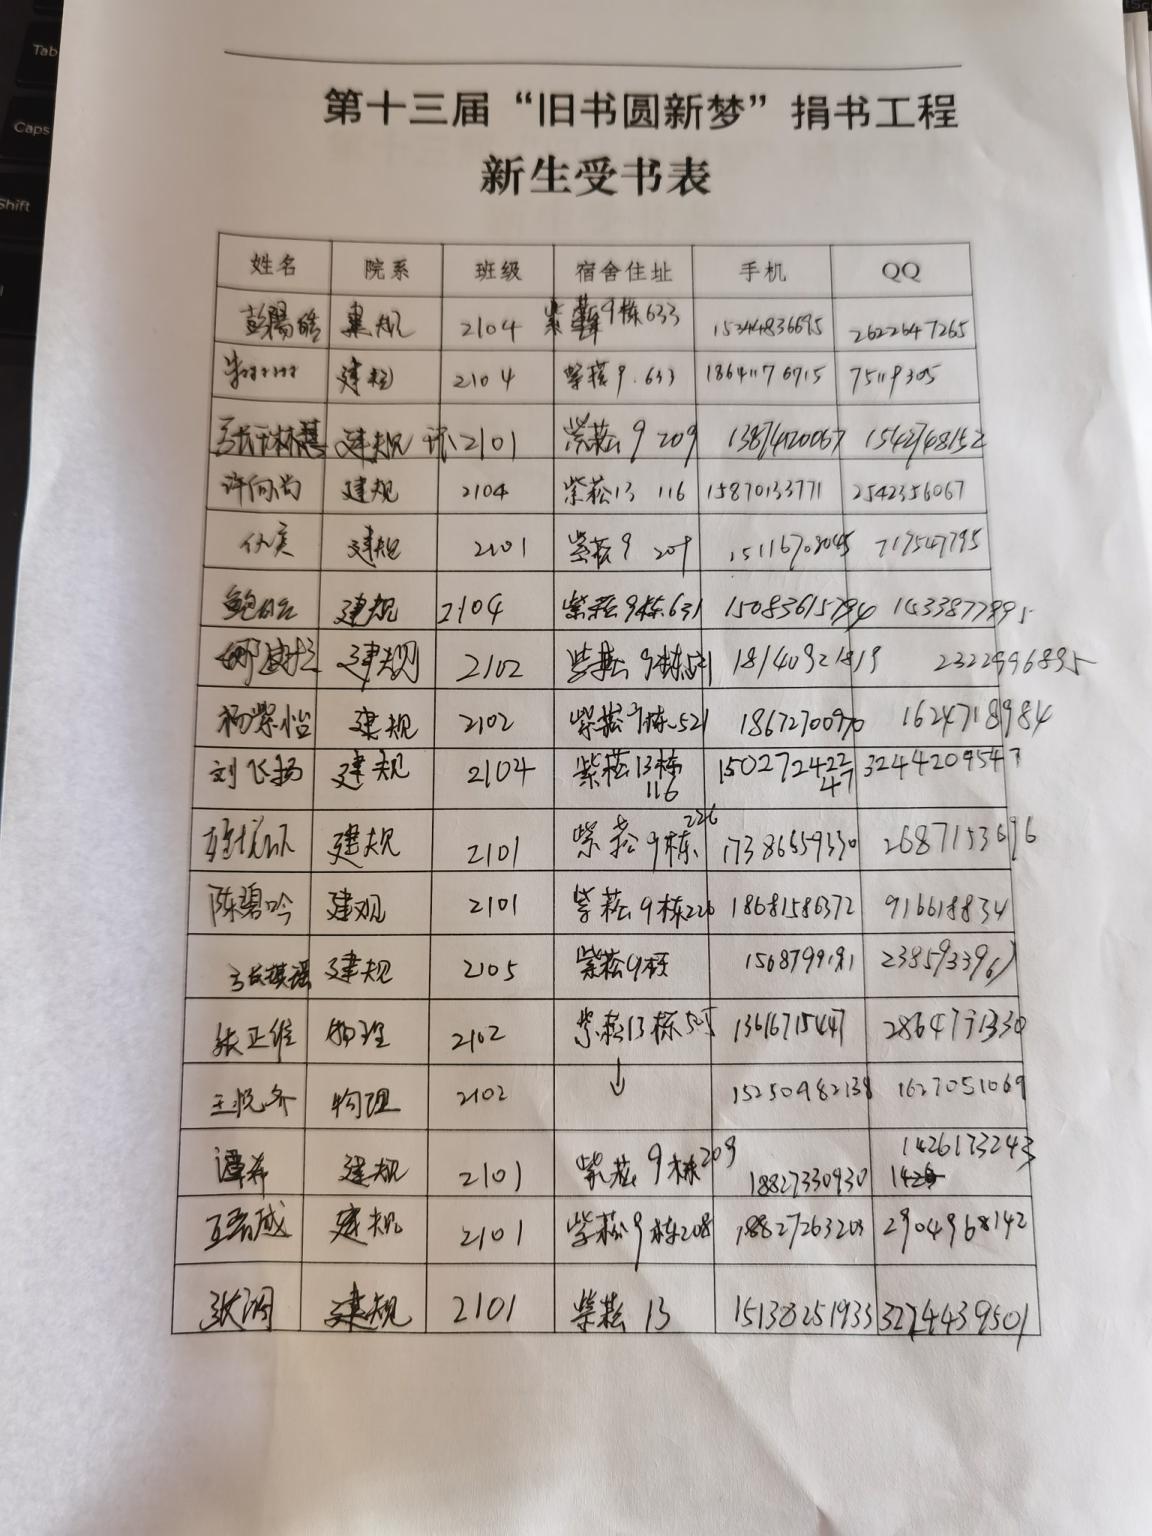 第十三届“旧书圆新梦”捐书工程
新生受书表
姓名 院系 班级 宿舍住址 手机 QQ
建规 2104 紫菘9栋633 15244836695 2622647265
建规 2104 紫菘9.633 75119305
建规 2101 紫菘9 209 13874120067 1542748152
许向尚 建规 2104 紫菘13 116 15870133771 2542356067
建规 2101 紫菘9 209 717547795
建规 2104 紫菘9栋631
建规 2102 18140921819 2322996895
杨紫怡 建规 2102 紫菘9栋521 18672700970 1624718984
刘飞扬 建规 2104 紫菘13栋116 15027242247 3244209547
建规 2101 紫菘9栋226 17386659330
陈碧吟 建规 2101 紫菘9栋226 18681586372 916618834
建规 2105 紫菘9栋
张正维 物理 2102 紫菘13栋505 13616715447 2864791330
王悦齐 物理 2102 ↓ 15250982138 1627051069
谭希 建规 2101 紫菘9栋209 18827330930 1426173243
建规 2101 紫菘9栋208 18827263203 2904968142
建规 2101 紫菘 13 15138251933 3274439501